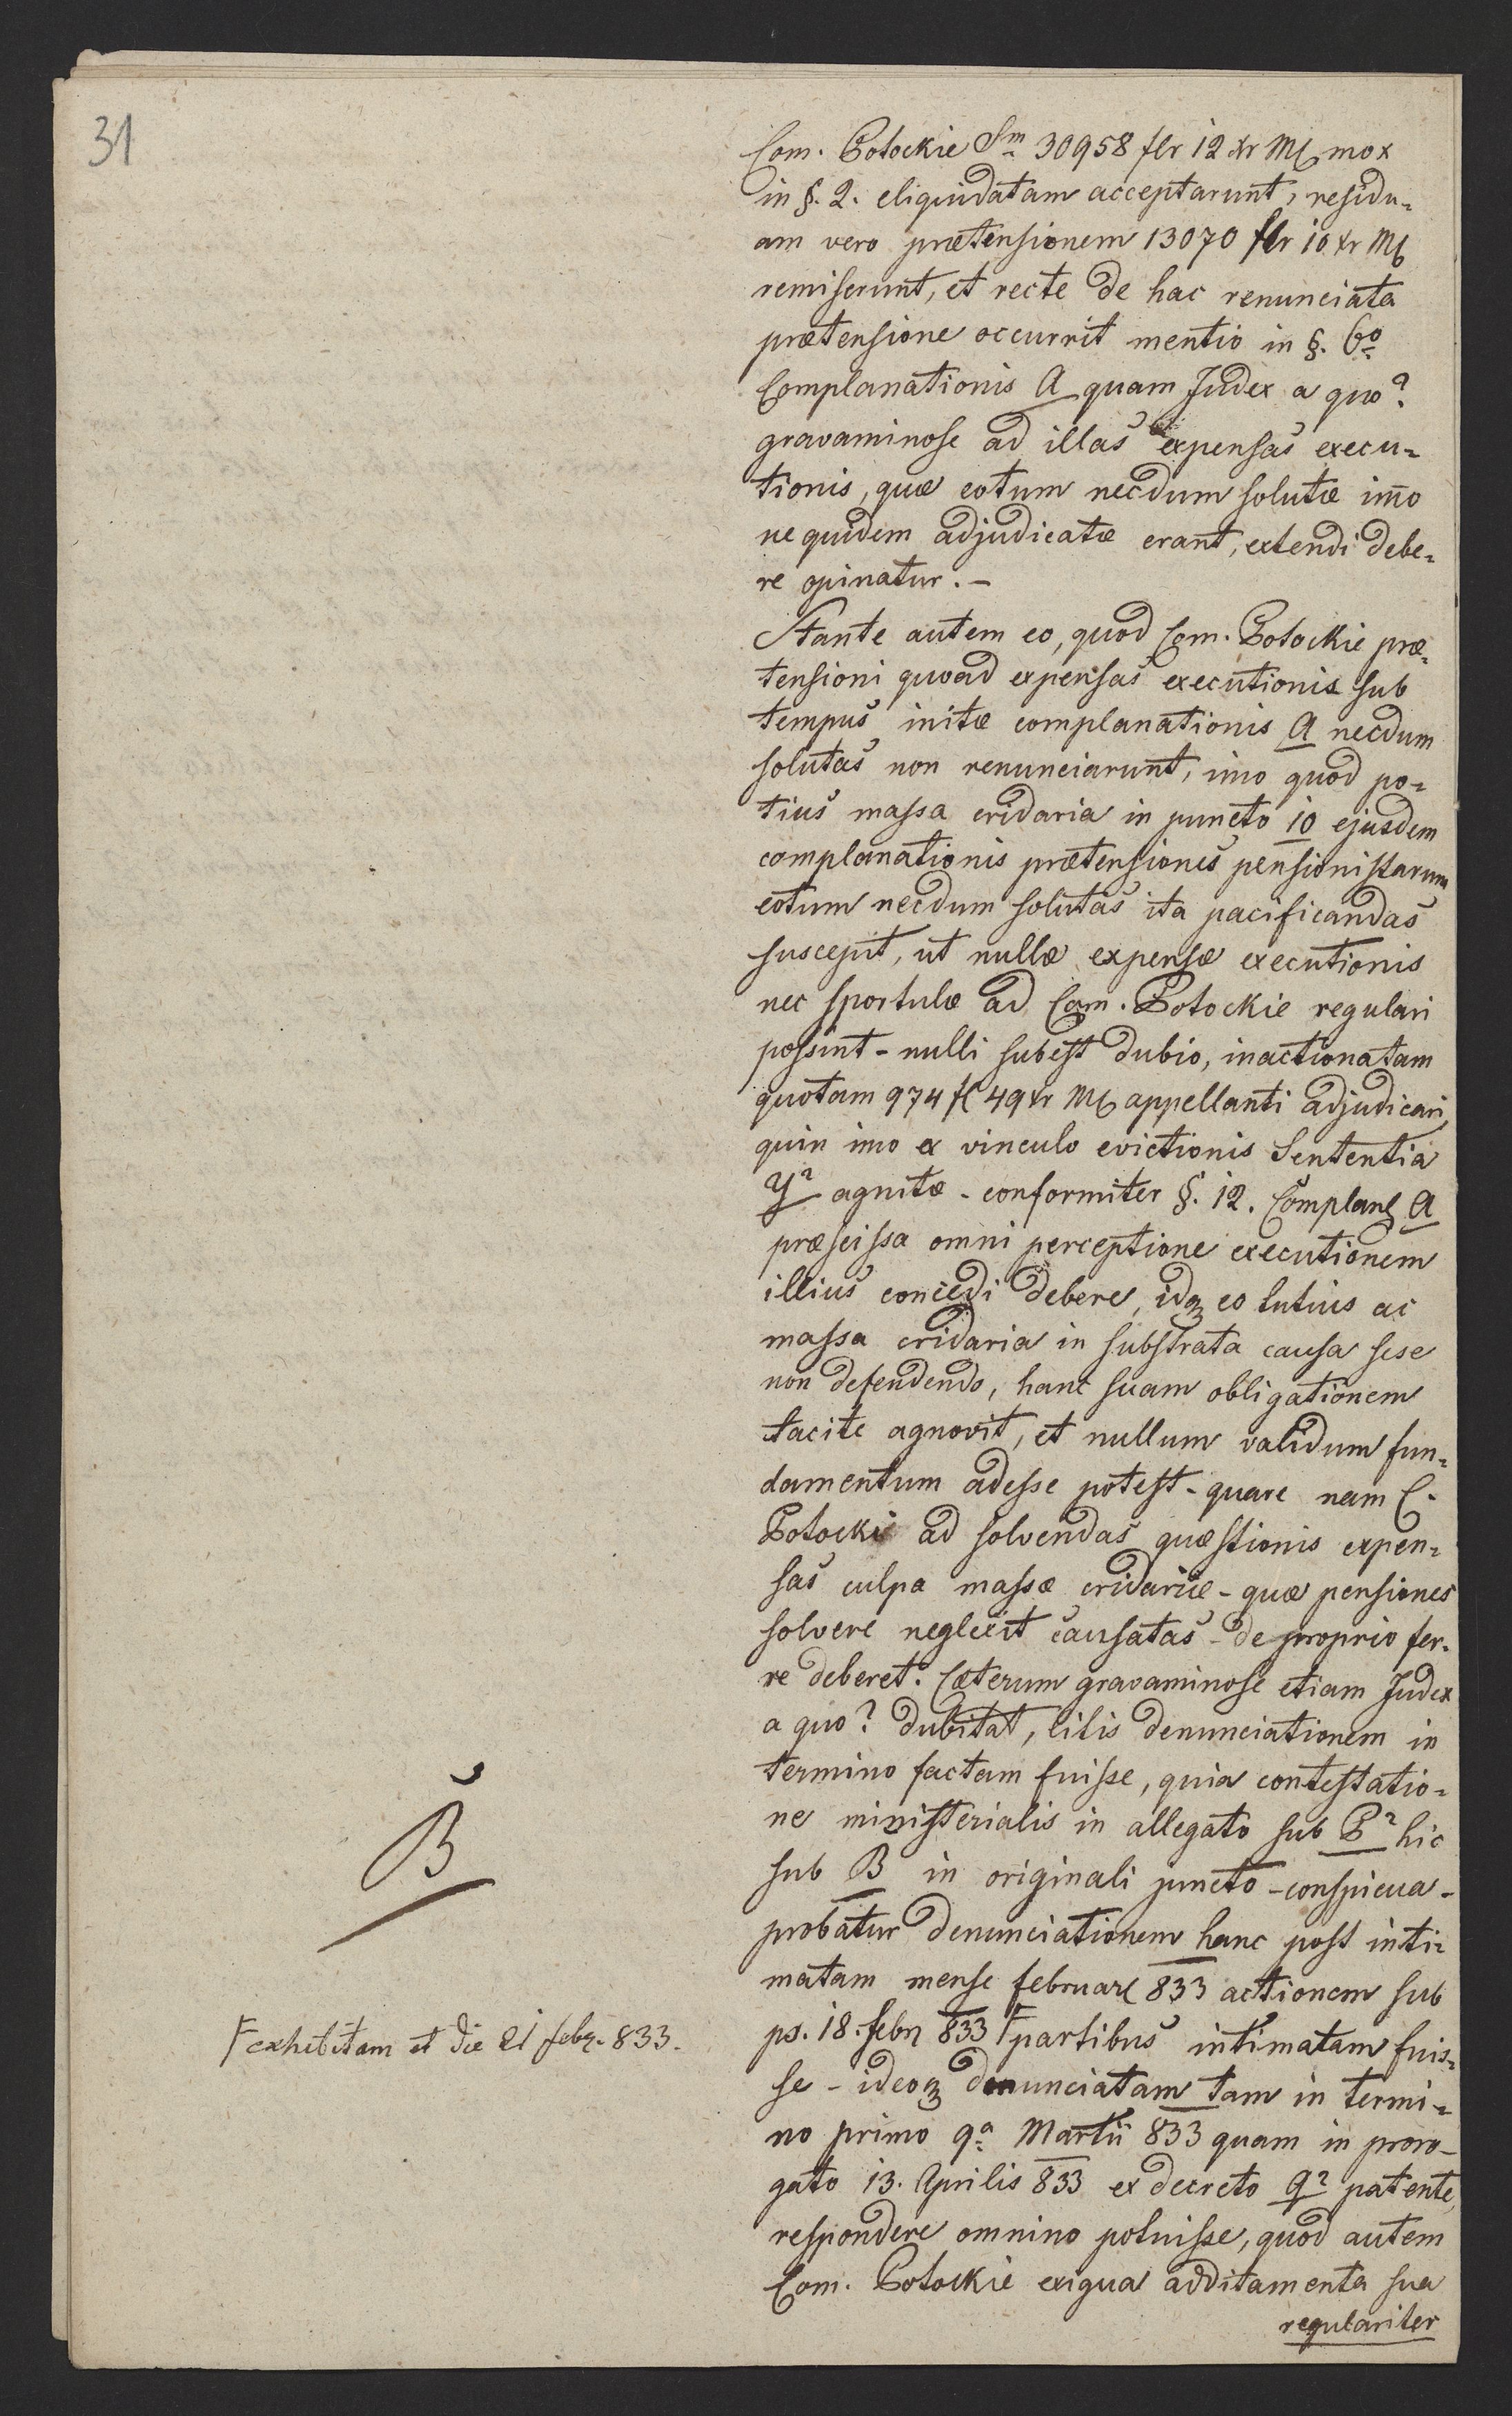 31
Com. Potockie Sm 30958 flr 12 xr M mox
in §. 2. eliquidatam acceptarunt, residu=
am vero prætensionem 13070 flr 10 xr M
remiserunt, et recte de hac renunciata
prætensione occurrit mentio in §. 6o
Complanationis A quam Judex a quo?
gravaminose ad illas expensas execu=
tionis, quæ eotum necdum solutæ im̄o
ne quidem adjudicatæ erant, extendi debe=
re opinatur. –
Stante autem eo, quod Com. Potockie præ=
tensioni quoad expensas executionis sub
tempus initæ complanationis A necdum
solutas non renunciarunt, imo quod po=
tius massa cridaria in puncto 10 ejusdem
complanationis prætensiones pensionistarum
eotum necdum solutas ita pacificandas
suscepit, ut nullæ expensæ executionis
nec sportulæ ad Com. Potockie regulari
possint – nulli subest dubio, inactionatam
quotam 974 fl 49 xr M appellanti adjudicari,
quin imo ex vinculo evictionis Sententia
Y² agnitæ – conformiter §. 12. Complan A
præscissa omni perceptione executionem
illius concedi debere, idq eo tutius ac
massa cridaria in substrata causa sese
non defendendo, hanc suam obligationem
tacite agnovit, et nullum validum fun=
damentum adesse potest – quare nam C.
Potocki ad solvendas quæstionis expen=
sas culpa massæ cridariæ – quæ pensiones
solvere neglexit causatas – de proprio fer=
re deberet. Cæterum gravaminose etiam Judex
a quo? dubitat, litis denunciationem in
termino factam fuisse, quia contestatio=
ne ministerialis in allegato sub P² hic
sub B in originali puncto – conspicua –
probatur denunciationem hanc post inti=
matam mense februar 833 actionem sub
ps. 18. febr 833 F partibus intimatam fuis=
se – ideoq denunciatam tam in termi=
no primo 9a Martii 833 quam in proro=
gato 13. Aprilis 833 ex decreto Q² patente,
respondere omnino potuisse, quod autem
Com. Potockie exigua additamenta sua
regulariter
B
F exhibitam et die 21 febr. 833.